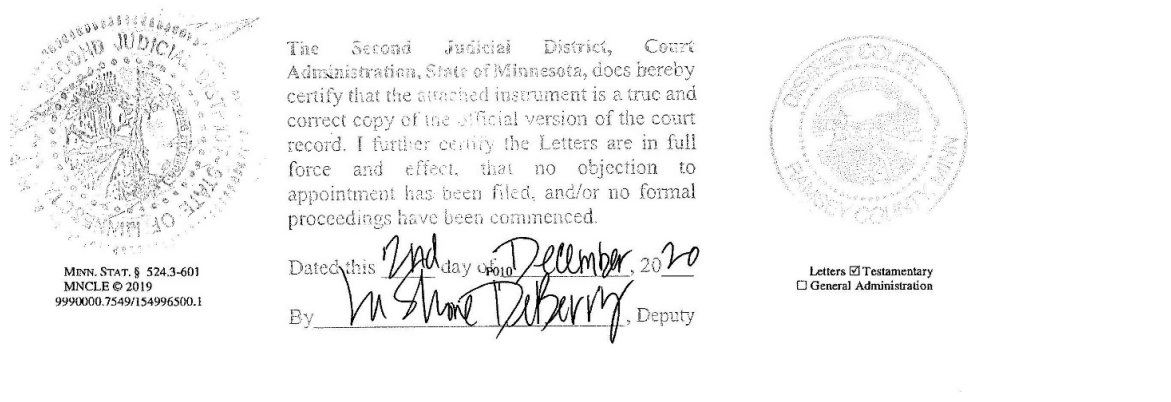 SECOND JUDICIAL DISTRICT
STATE OF MINNESOTA
MINN. STAT. § 524.3-601
MNCLE © 2019
9990000.7549/154996500.1
The Second Judicial District, Court
Administration, State of Minnesota, does hereby
certify that the attached instrument is a true and
correct copy of the official version of the court
record. I further certify the Letters are in full
force and effect, that no objection to
appointment has been filed, and/or no formal
proceedings have been commenced.
Dated this 2nd day of P010 December, 2020
By DeBerry, Deputy
DISTRICT COURT
RAMSEY COUNTY, MINN
Letters ☑ Testamentary
☐ General Administration